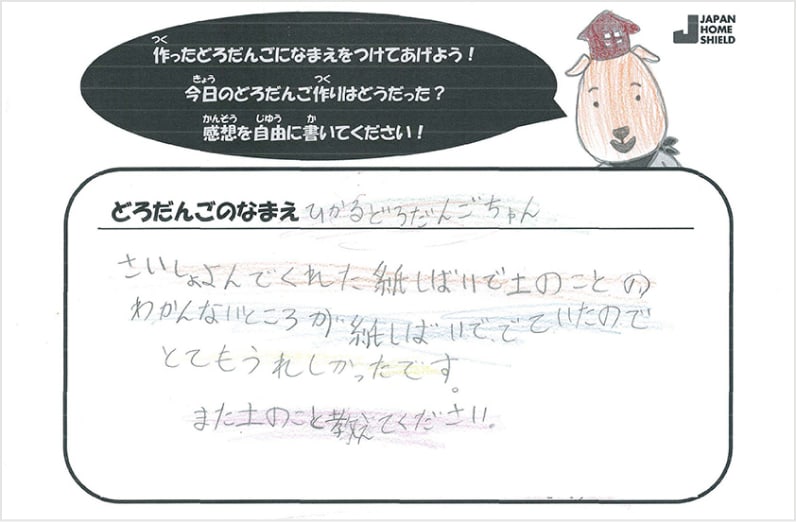 作ったどろだんごになまえをつけてあげよう！
今日のどろだんご作りはどうだった？
感想を自由に書いてください！
JAPAN
HOME
SHIELD
どろだんごのなまえ ひかるどろだんごちゃん
さいしょよんでくれた紙しばいで土のことの
わかんないところが紙しばいででていたので
とてもうれしかったです。
また土のこと教えてください。